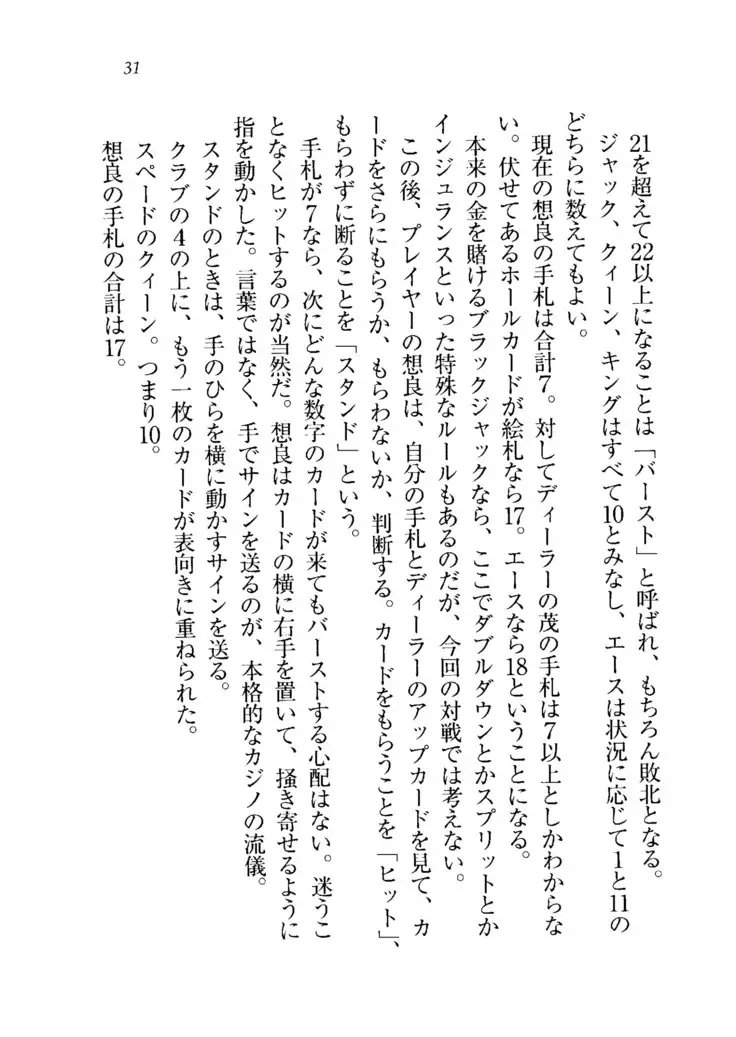 31
21を超えて22以上になることは「バースト」と呼ばれ、もちろん敗北となる。
ジャック、クィーン、キングはすべて10とみなし、エースは状況に応じて1と11の
どちらに数えてもよい。
現在の想良の手札は合計7。対してディーラーの茂の手札は7以上としかわからな
い。伏せてあるホールカードが絵札なら17。エースなら18ということになる。
本来の金を賭けるブラックジャックなら、ここでダブルダウンとかスプリットとか
インジュランスといった特殊なルールもあるのだが、今回の対戦では考えない。
この後、プレイヤーの想良は、自分の手札とディーラーのアップカードを見て、カ
ードをさらにもらうか、もらわないか、判断する。カードをもらうことを「ヒット」、
もらわずに断ることを「スタンド」という。
手札が7なら、次にどんな数字のカードが来てもバーストする心配はない。迷うこ
となくヒットするのが当然だ。想良はカードの横に右手を置いて、掻き寄せるように
指を動かした。言葉ではなく、手でサインを送るのが、本格的なカジノの流儀。
スタンドのときは、手のひらを横に動かすサインを送る。
クラブの4の上に、もう一枚のカードが表向きに重ねられた。
スペードのクィーン。つまり10。
想良の手札の合計は17。